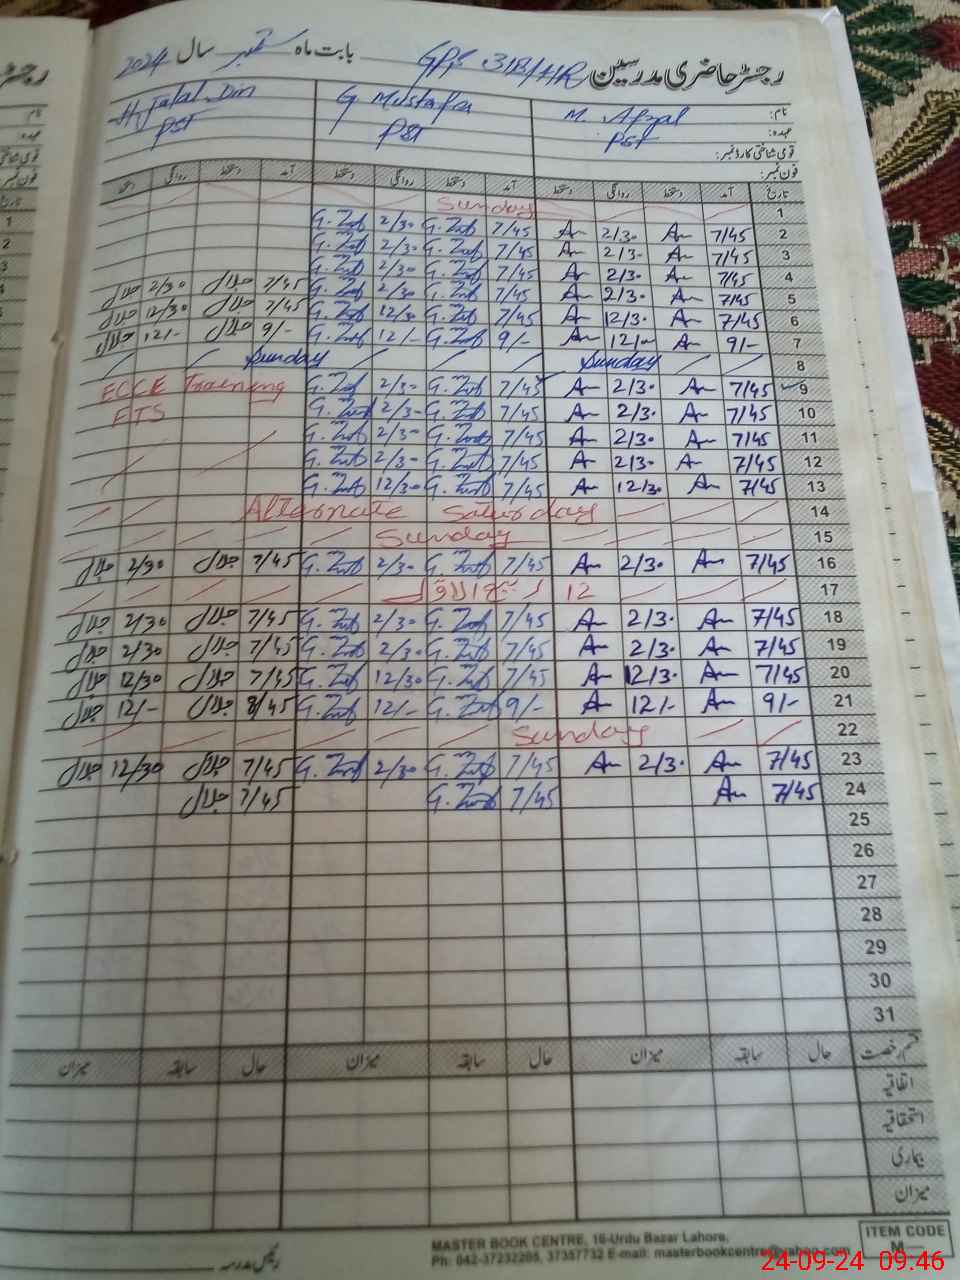 رجسٹر حاضری مدرسین GPS 31B/HR بابت ماہ ستمبر سال 2024
نام: M. Afzal G Mustafa H. Jalal Din
عہدہ: PST PST PST
قومی شناختی کارڈ نمبر:
فون نمبر:
تاریخ آمد دستخط روانگی دستخط آمد دستخط روانگی دستخط آمد دستخط روانگی دستخط
1 Sunday
2 7/45 2/30 7/45 2/30
3 7/45 2/30 7/45 2/30
4 7/45 2/30 7/45 2/30
5 7/45 2/30 7/45 2/30 7/45 جلال 2/30 جلال
6 7/45 12/30 7/45 12/30 7/45 جلال 12/30 جلال
7 9/- 12/- 9/- 12/- 9/- جلال 12/- جلال
8 Sunday Sunday
9 7/45 2/30 7/45 2/30 ECCE Training
10 7/45 2/30 7/45 2/30
11 7/45 2/30 7/45 2/30
12 7/45 2/30 7/45 2/30
13 7/45 12/30 7/45 12/30
14 Alternate Saturday
15 Sunday
16 7/45 2/30 7/45 2/30 7/45 جلال 2/30 جلال
17 12 ربیع الاول
18 7/45 2/30 7/45 2/30 7/45 جلال 2/30 جلال
19 7/45 2/30 7/45 2/30 7/45 جلال 2/30 جلال
20 7/45 12/30 7/45 12/30 7/45 جلال 12/30 جلال
21 9/- 12/- 9/- 12/- 8/45 جلال 12/- جلال
22 Sunday
23 7/45 2/30 7/45 2/30 7/45 جلال 12/30 جلال
24 7/45 7/45 7/45 جلال
25
26
27
28
29
30
31
قسم رخصت حال سابقہ میزان حال سابقہ میزان حال سابقہ میزان
اتفاقیہ
استحقاقیہ
بیماری
میزان
رئیس مدرسہ
MASTER BOOK CENTRE, 16-Urdu Bazar Lahore.
Ph: 042-37232205, 37357732 E-mail: masterbookcentre@yahoo.com
ITEM CODE
M—
24-09-24 09:46